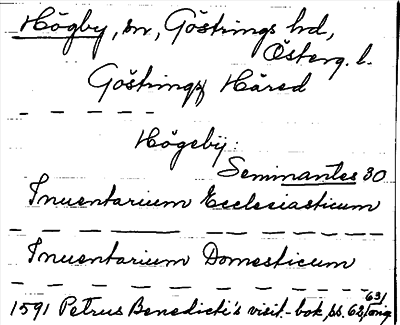 Högby, sn, Göstrings hd,
Österg. l.
Göstringz Häred
Högeby:
Seminantes 30
Inuentarium Ecclesiasticum
Inuentarium Domesticum
63/
1591 Petrus Benedicti's visit.-bok, ss. 62, orig